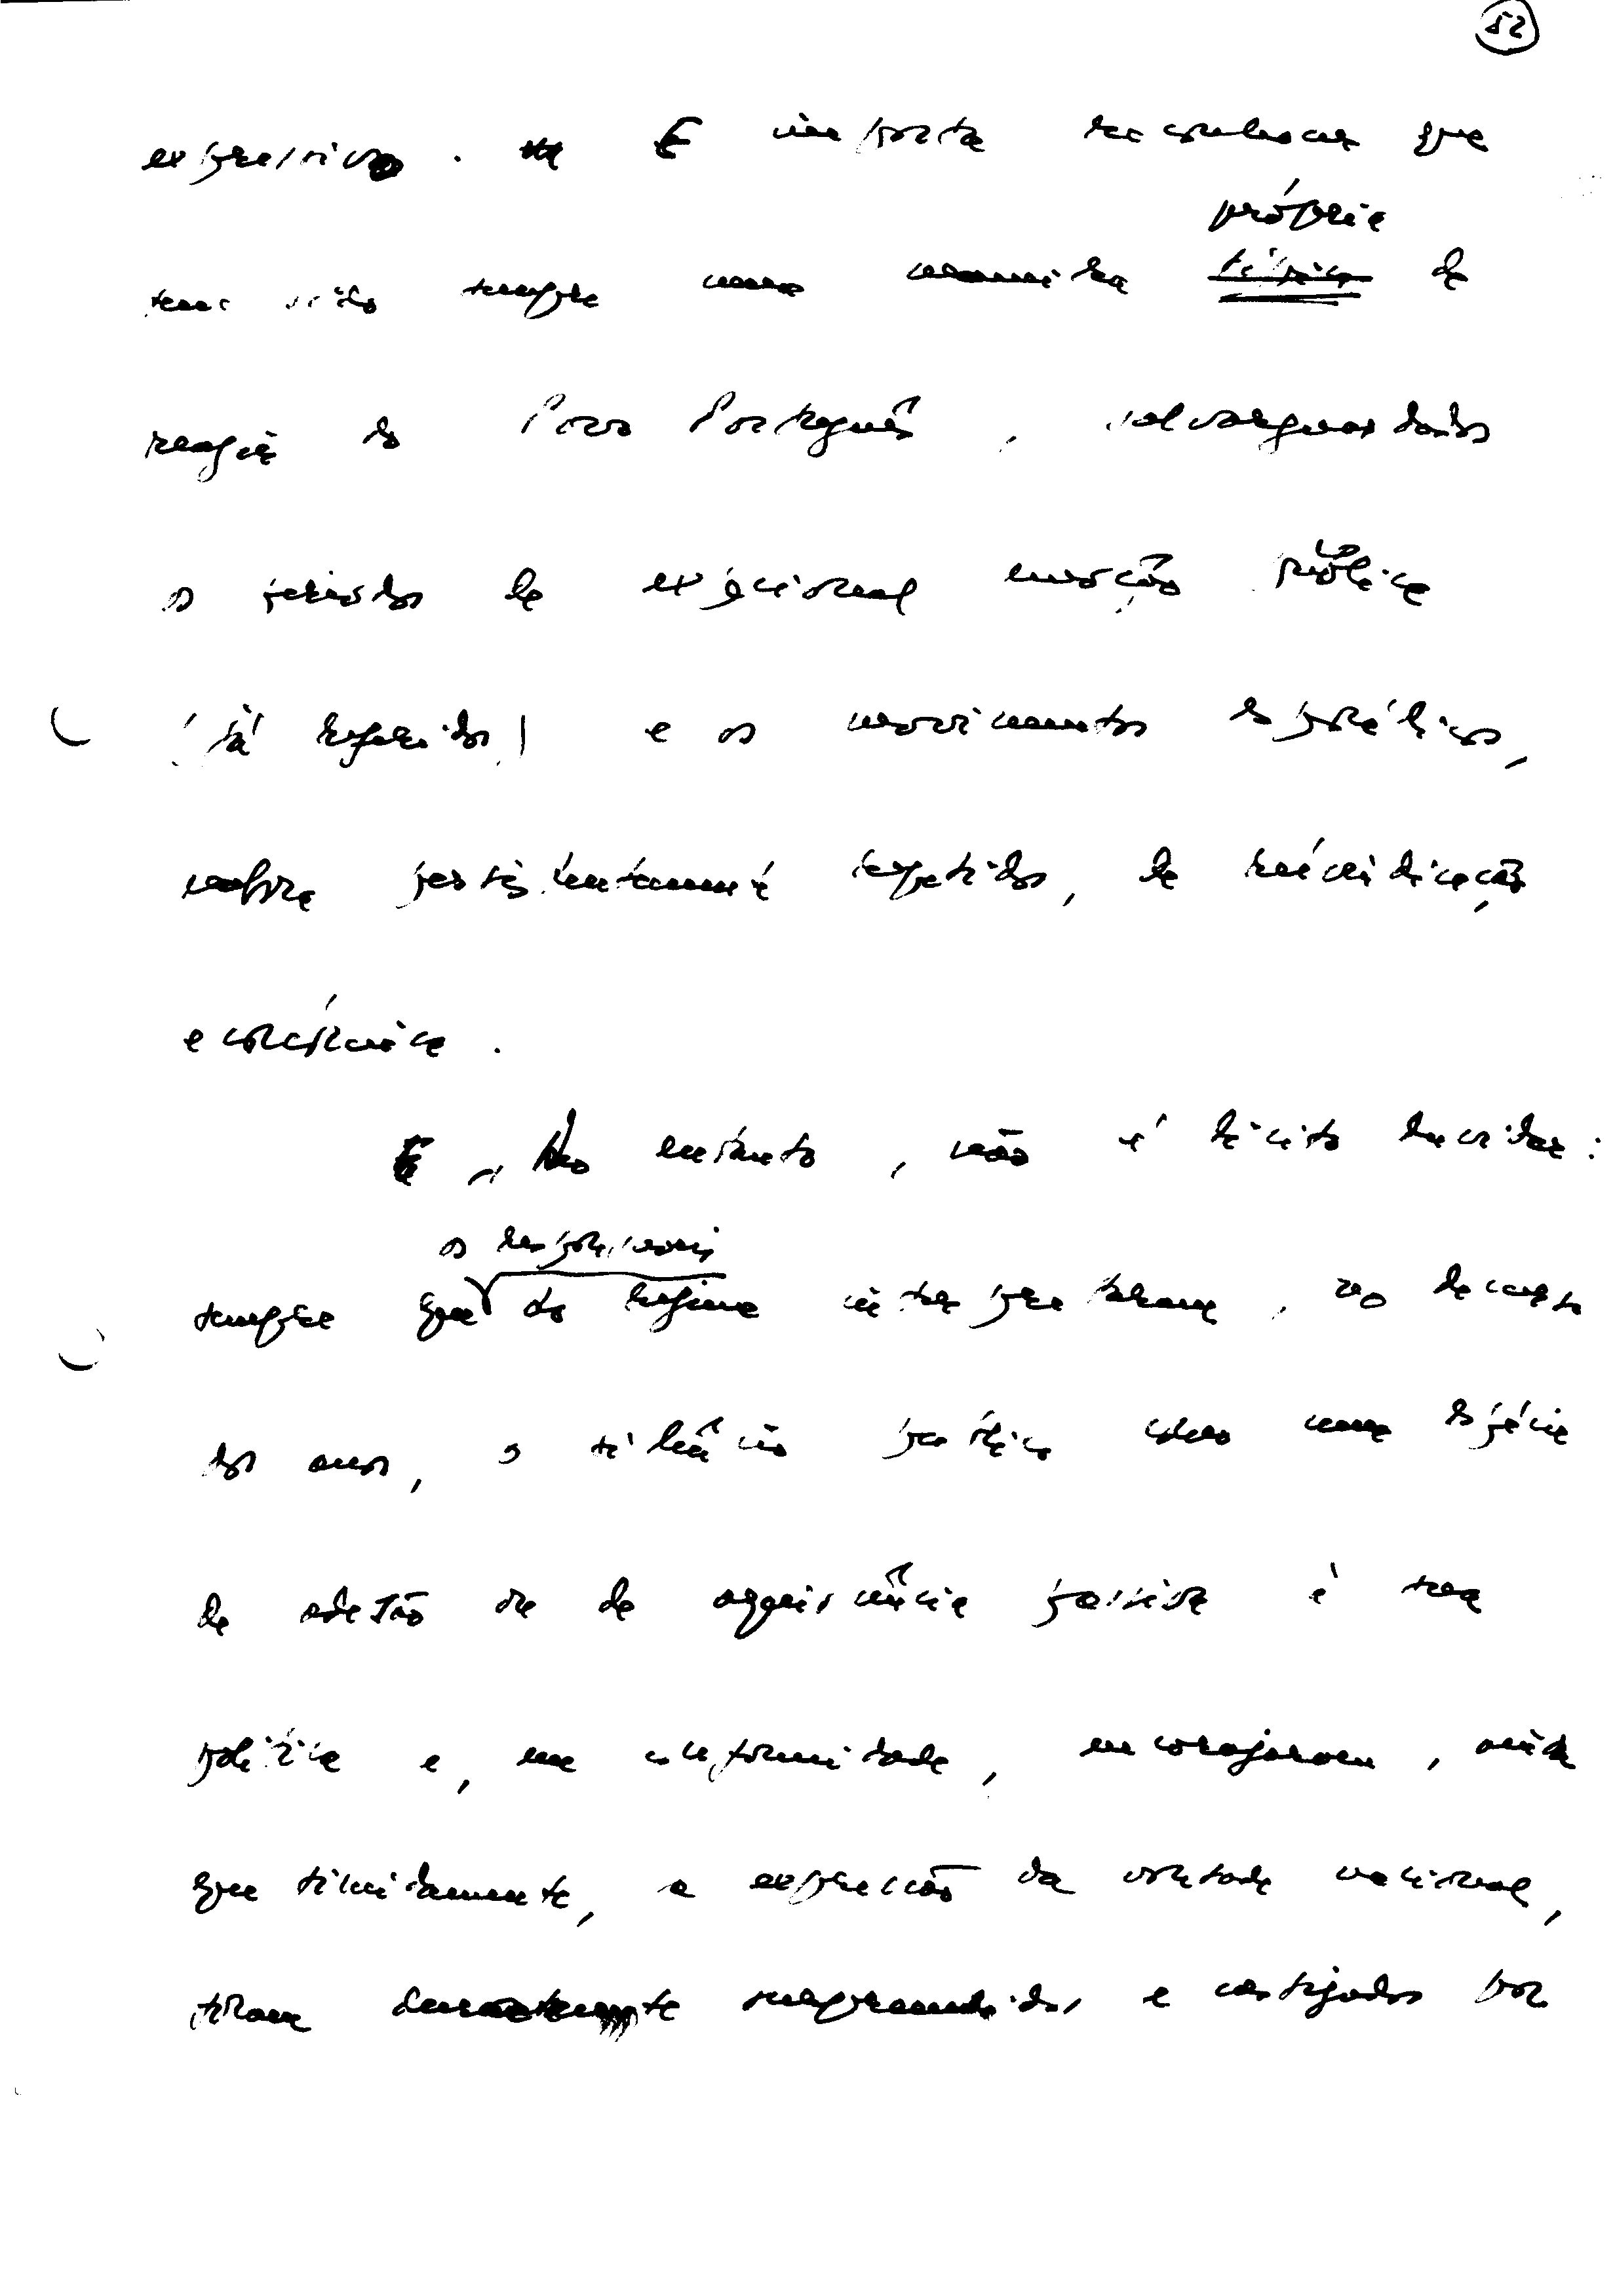 52
expressivo. E importa reconhecer que
própria
tem sido sempre uma maneira típica de
reagir do Povo Português, salvaguardados
os períodos de excepcional emoção pública
(já referidos) e os movimentos esporádicos,
mas persistentemente repetidos, de reivindicação
económica.
E, no entanto, não é lícito duvidar:
os responsáveis
sempre que do regime interpretaram, no decurso
dos anos, o silêncio público como uma espécie
de adesão ou de aquiescência passiva à sua
política e, em conformidade, encorajaram, ainda
que timidamente, a expressão da vontade nacional,
foram duramente surpreendidos e castigados por